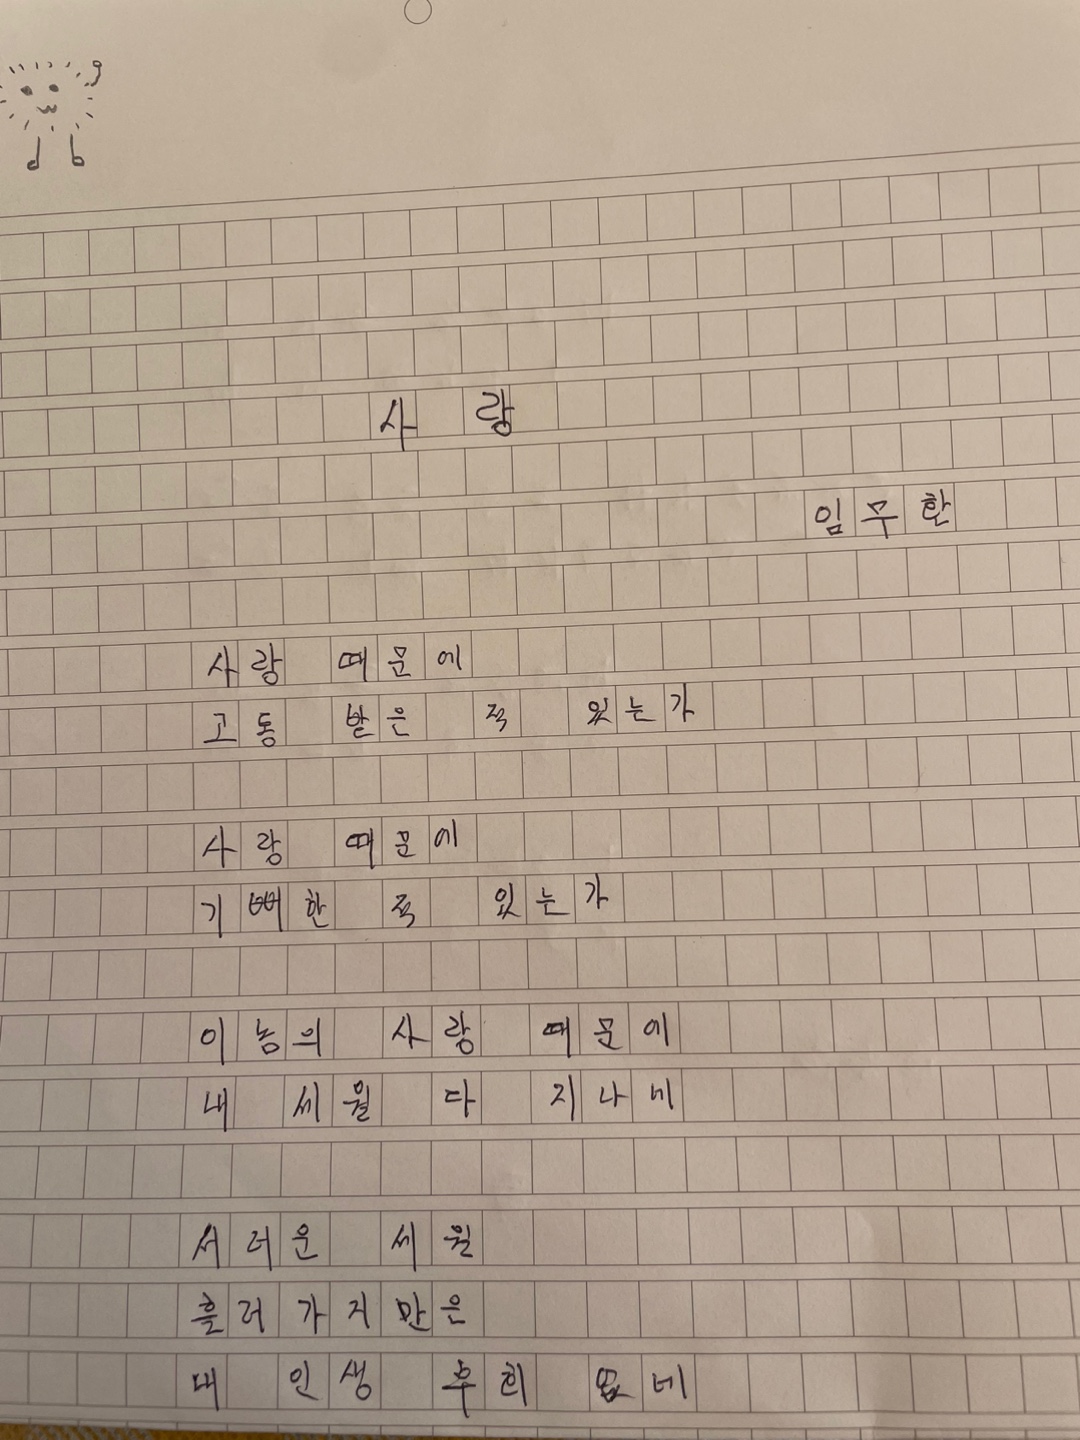 사랑
임무한
사랑 때문에
고동 받은 적 있는가
사랑 때문에
기뻐한 적 있는가
이놈의 사랑 때문에
내 세월 다 지나네
서러운 세월
흘러가지만은
내 인생 후회 없네